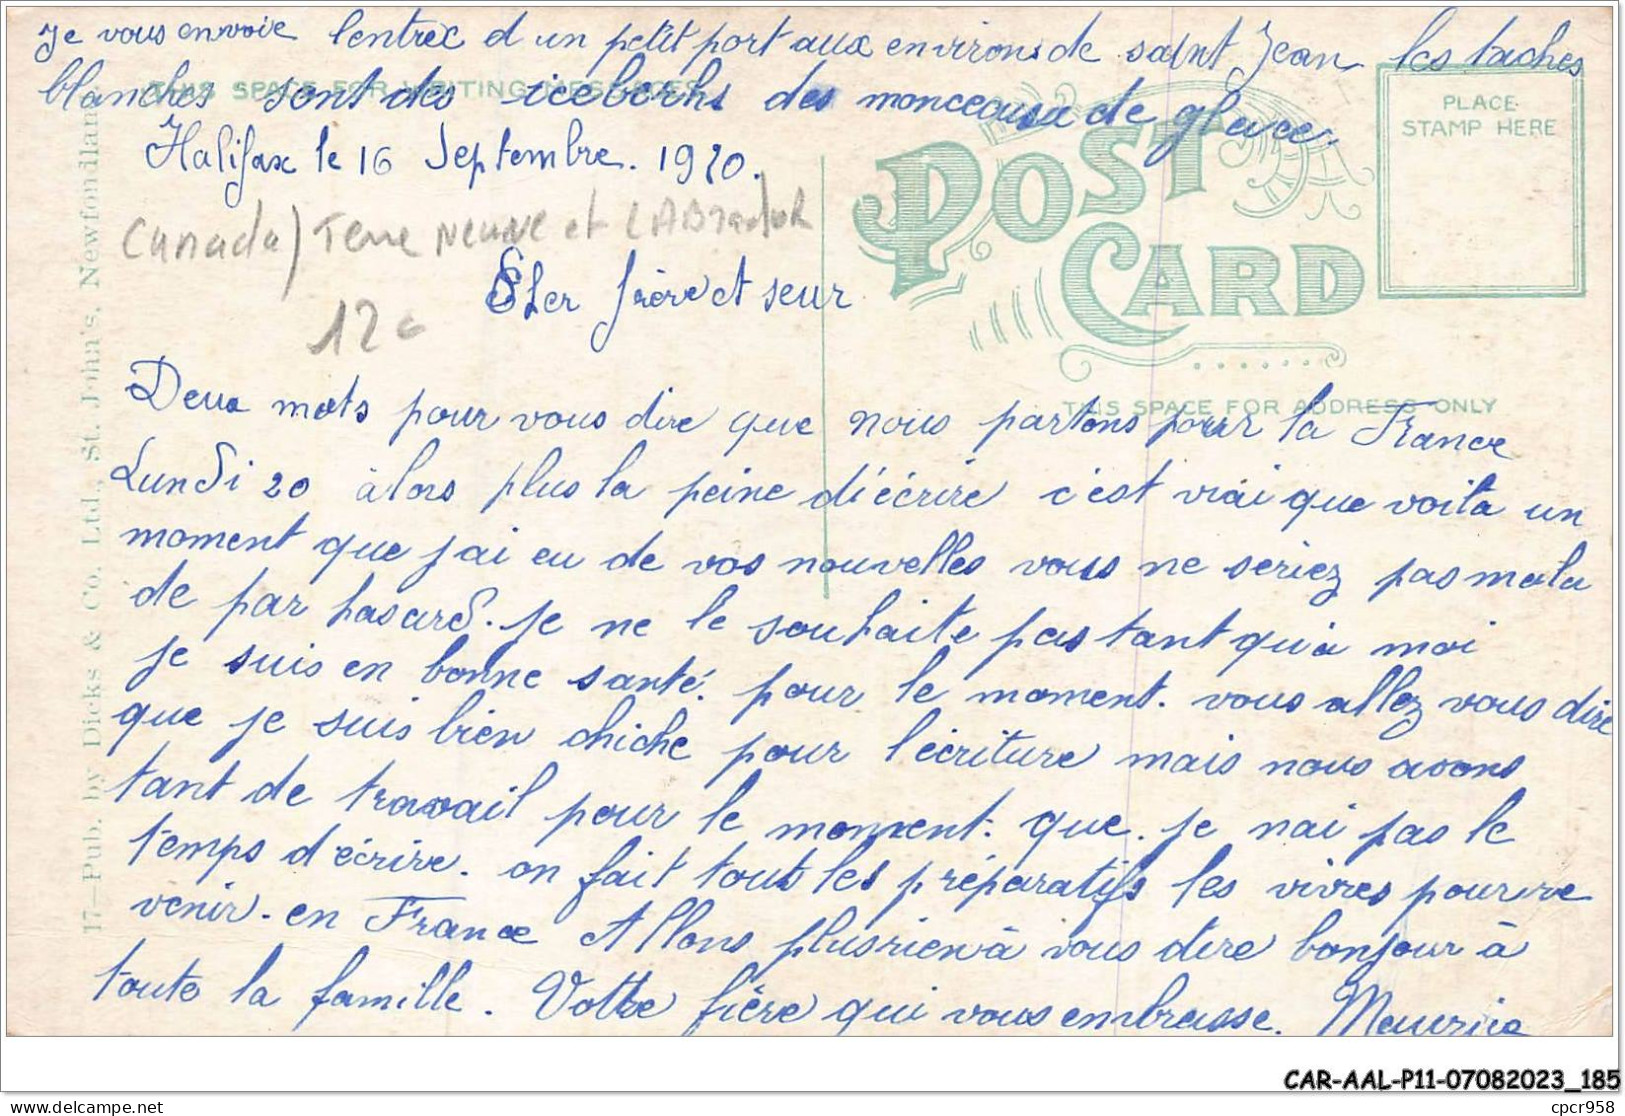 Je vous envoie lentrée d un petit port aux environs de saint Jean les taches
blanches sont des iceberhs des monceaux de glace.
THIS SPACE FOR WRITING MESSAGES
PLACE
STAMP HERE
POST
CARD
Halifax le 16 Septembre. 1920.
Canada / Terre Neuve et LABrador
12€
Cher frère et seur
THIS SPACE FOR ADDRESS ONLY
Deux mots pour vous dire que nous partons pour la France
Lundi 20 àlors plus la peine d'écrire c'est vrai que voila un
moment que j'ai eu de vos nouvelles vous ne seriez pas mala
de par hasard. je ne le souhaite pas tant qu'a moi
je suis en bonne santé. pour le moment. vous allez vous dire
que je suis bien chiche pour l'écriture mais nous avons
tant de travail pour le moment. que. je nai pas le
temps d'écrire. on fait tout les préparatifs les vivres pour re
venir. en France Allons plus rien à vous dire bonjour à
toute la famille. Votre frère qui vous embrasse. Maurice
17—Pub. by Dicks & Co. Ltd., St. John's, Newfoundland.
CAR-AAL-P11-07082023_185
delcampe.net
cpcr958